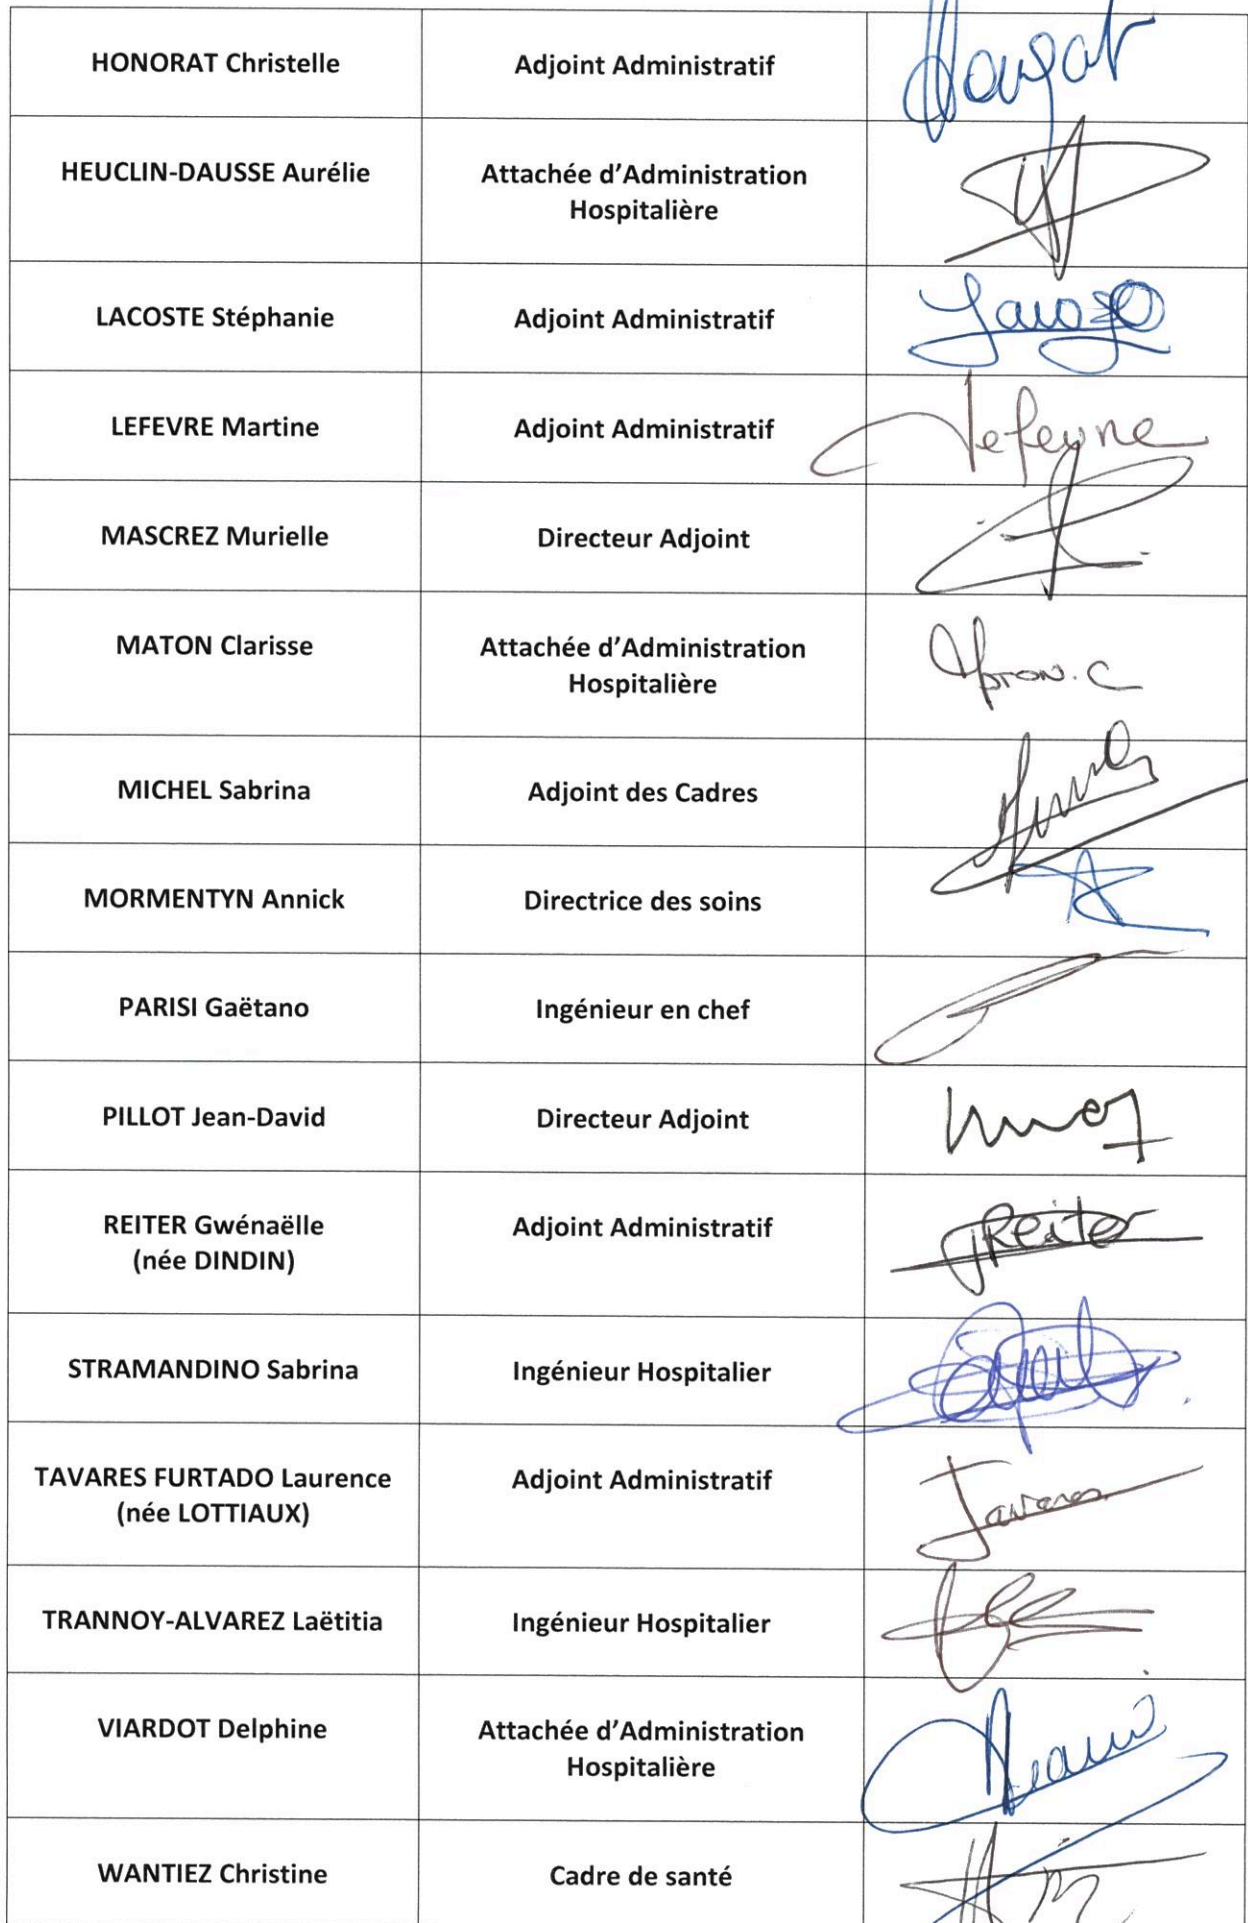 HONORAT Christelle
Adjoint Administratif
HEUCLIN-DAUSSE Aurélie
Attachée d'Administration
Hospitalière
LACOSTE Stéphanie
Adjoint Administratif
LEFEVRE Martine
Adjoint Administratif
Lefevre
MASCREZ Murielle
Directeur Adjoint
MATON Clarisse
Attachée d'Administration
Hospitalière
MATON. C
MICHEL Sabrina
Adjoint des Cadres
MORMENTYN Annick
Directrice des soins
PARISI Gaëtano
Ingénieur en chef
PILLOT Jean-David
Directeur Adjoint
REITER Gwénaëlle
(née DINDIN)
Adjoint Administratif
Reiter
STRAMANDINO Sabrina
Ingénieur Hospitalier
TAVARES FURTADO Laurence
(née LOTTIAUX)
Adjoint Administratif
Tavares
TRANNOY-ALVAREZ Laëtitia
Ingénieur Hospitalier
VIARDOT Delphine
Attachée d'Administration
Hospitalière
WANTIEZ Christine
Cadre de santé